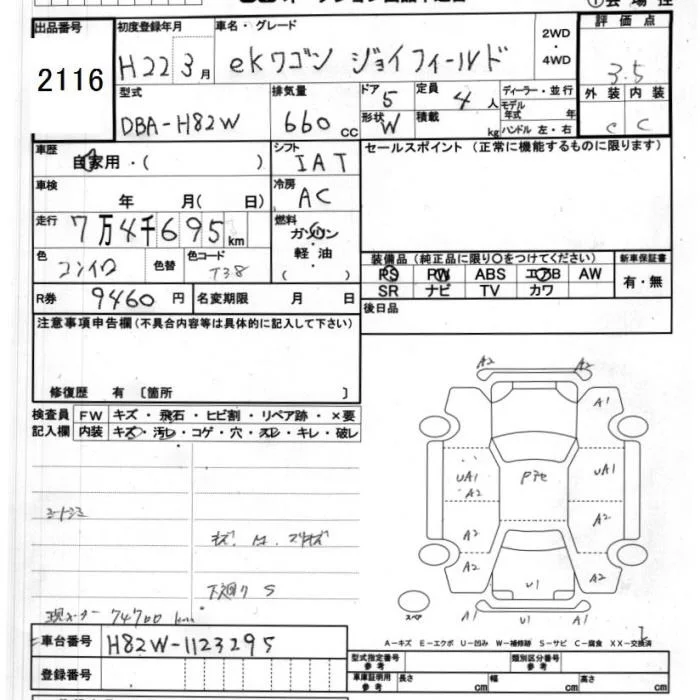 出品番号
2116
初度登録年月
H22 3月
車名・グレード
ekワゴン ジョイフィールド
2WD
・
4WD
評価点
3.5
外装 内装
C C
型式
DBA-H82W
排気量
660 cc
ドア 5
定員 4 人
形状 W
積載 kg
ディーラー・並行
モデル年式 年
ハンドル 左・右
車歴
自家用・( )
シフト
IAT
セールスポイント (正常に機能するものに限ります)
車検
年 月( 日)
冷房
AC
走行
7万4千695km
燃料
ガソリン
軽油
( )
色
コンイロ
色替
色コード
T38
装備品 (純正品に限り〇をつけてください)
PS PW ABS エアB AW
SR ナビ TV カワ
新車保証書
有・無
R券 9460円
名変期限 月 日
後日品
注意事項申告欄(不具合内容等は具体的に記入して下さい)
修復歴 有 〔箇所 〕
検査員記入欄
FW キズ・飛石・ヒビ割・リペア跡・×要
内装 キズ・汚レ・コゲ・穴・スレ・キレ・破レ
下廻り S
現メーター 74700 km
A2 A2
A1
UA1
A2
Pアセ
UA1
A2 A2
A2 A2
U1
A1 U1 A1
スペア
A-キズ E-エクボ U-凹み W-補修跡 S-サビ C-腐食 XX-交換済
車台番号 H82W-1123295
登録番号
型式指定番号
参考
類別区分番号
参考
車庫証明用
参考
長さ cm 幅 cm 高さ cm